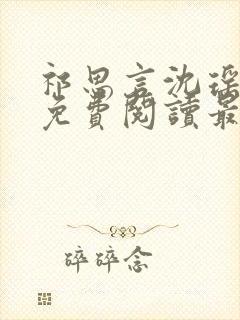 祁思言沈瑶
免費閱讀最
碎碎念